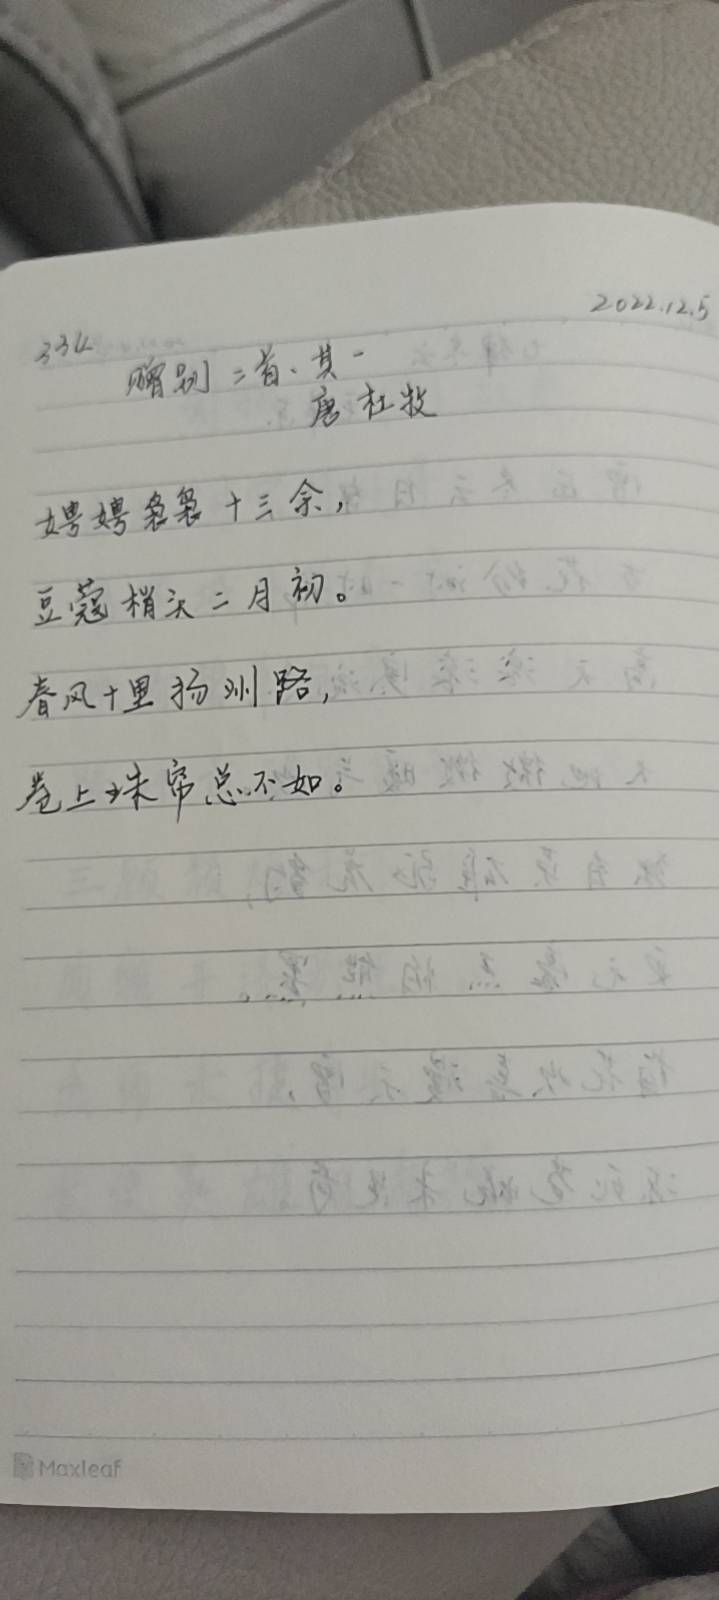 334
2022.12.5
赠别二首·其一
唐 杜牧
娉娉袅袅十三余,
豆蔻梢头二月初。
春风十里扬州路,
卷上珠帘总不如。
Maxleaf